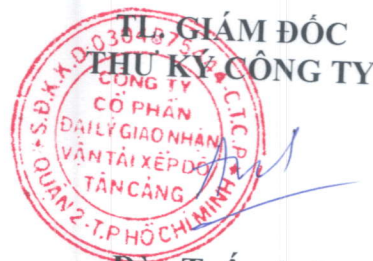 TL. GIÁM ĐỐC
THƯ KÝ CÔNG TY
CÔNG TY
CỔ PHẦN
ĐẠI LÝ GIAO NHẬN
VẬN TẢI XẾP DỠ
TÂN CẢNG
QUẬN 2 - T.P HỒ CHÍ MINH